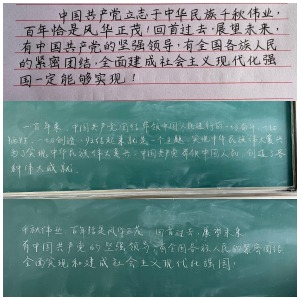 中国共产党立志于中华民族千秋伟业，
百年恰是风华正茂！回首过去，展望未来，
有中国共产党的坚强领导，有全国各族人民
的紧密团结，全面建成社会主义现代化强
国一定能够实现！
一百年来，中国共产党团结带领中国人民进行的一切奋斗、一切
牺牲、一切创造，归结起来就是一个主题：实现中华民族伟大复兴
为了实现中华民族伟大复兴，中国共产党带领中国人民，创造了各
种伟大成就。
千秋伟业，百年恰是风华正茂，回首过去，展望未来
有中国共产党的坚强领导，有全国各族人民的紧密团结
全面实现和建成社会主义现代化强国！